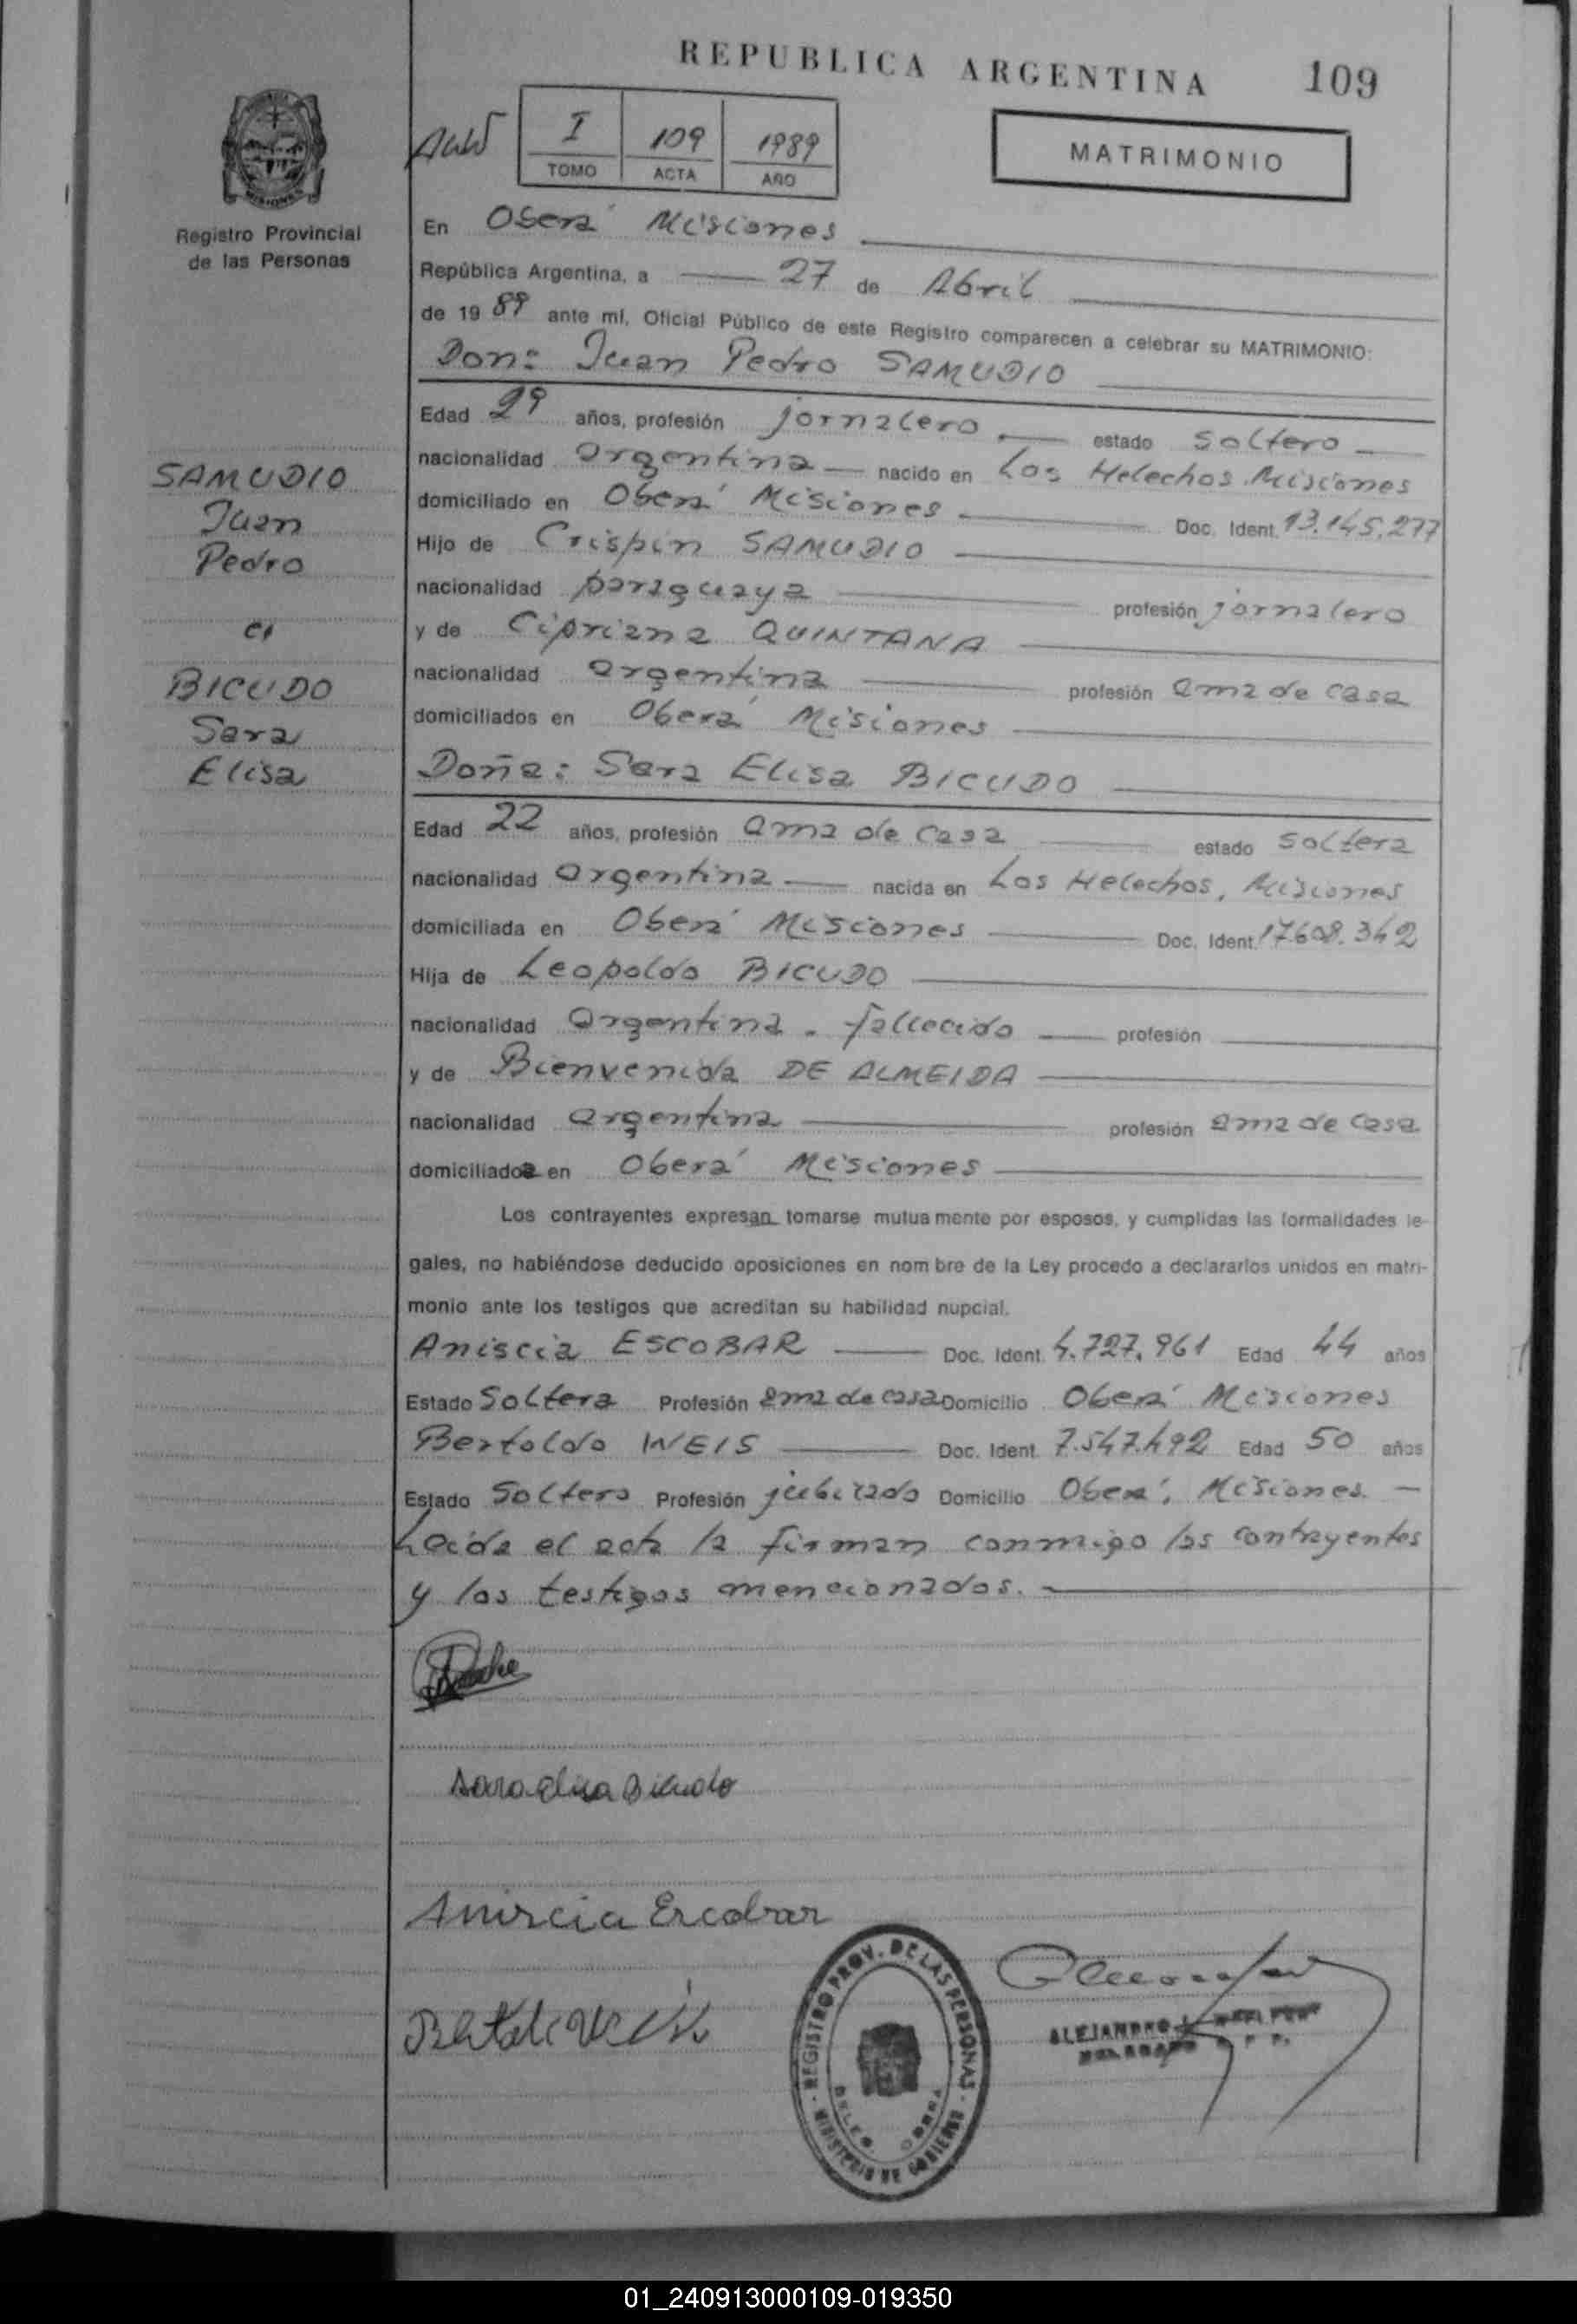 REPUBLICA ARGENTINA 109
I 109 1989
TOMO ACTA AÑO
MATRIMONIO
MISIONES
Registro Provincial
de las Personas
En Oberá Misiones
República Argentina, a 27 de Abril
de 1989 ante mí, Oficial Público de este Registro comparecen a celebrar su MATRIMONIO:
Don: Juan Pedro SAMUDIO
Edad 29 años, profesión jornalero estado soltero
nacionalidad argentina nacido en Los Helechos Misiones
domiciliado en Oberá Misiones Doc. Ident. 13.145.277
Hijo de Crispin SAMUDIO
nacionalidad paraguaya profesión jornalero
y de Cipriana QUINTANA
nacionalidad argentina profesión ama de casa
domiciliados en Oberá Misiones
SAMUDIO
Juan
Pedro
c/
BICUDO
Sara
Elisa
Doña: Sara Elisa BICUDO
Edad 22 años, profesión ama de casa estado soltera
nacionalidad argentina nacida en Los Helechos, Misiones
domiciliada en Oberá Misiones Doc. Ident. 17.608.342
Hija de Leopoldo BICUDO
nacionalidad argentina - fallecido profesión
y de Bienvenida DE ALMEIDA
nacionalidad argentina profesión ama de casa
domiciliada en Oberá Misiones
Los contrayentes expresan tomarse mutuamente por esposos, y cumplidas las formalidades le-
gales, no habiéndose deducido oposiciones en nombre de la Ley procedo a declararlos unidos en matri-
monio ante los testigos que acreditan su habilidad nupcial.
Aniscia ESCOBAR Doc. Ident. 4.727.961 Edad 44 años
Estado Soltera Profesión ama de casa Domicilio Oberá Misiones
Bertoldo WEIS Doc. Ident. 7.547.492 Edad 50 años
Estado Soltero Profesión jubilado Domicilio Oberá, Misiones. -
Leida el acta la firman conmigo los contrayentes
y los testigos mencionados.
Sara Elisa Bicudo
Aniscia Escobar
REGISTRO PROV. DE LAS PERSONAS - MINISTERIO DE GOBIERNO -
DELEG. OBERA
ALEJANDRO
01_240913000109-019350